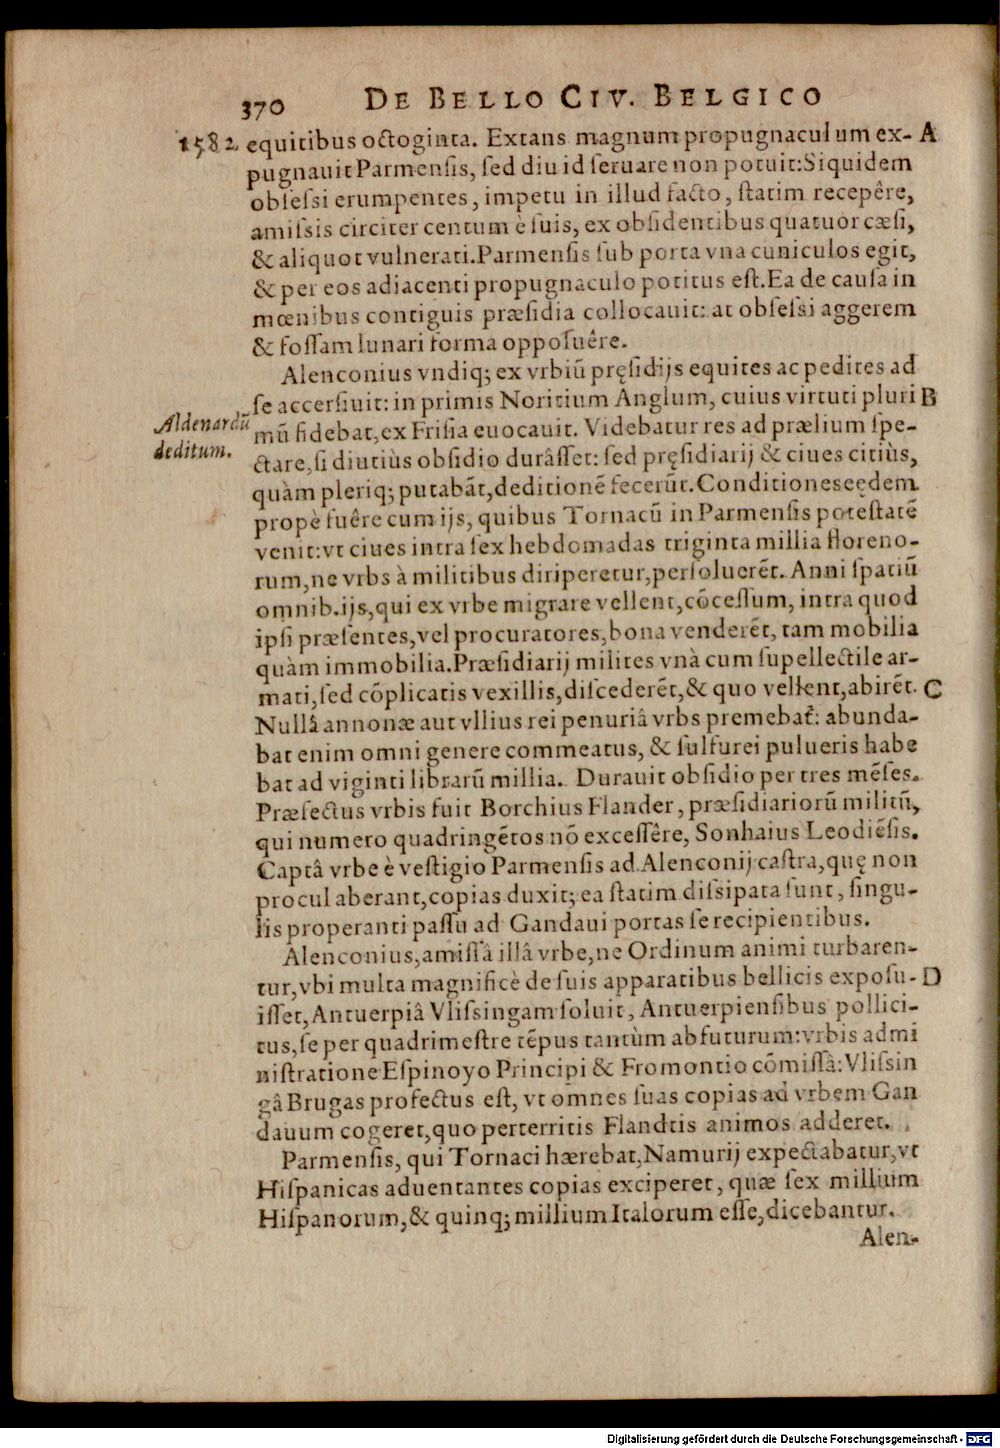 370 DE BELLO CIV. BELGICO
1582. equitibus octoginta. Extans magnum propugnaculum ex- A
pugnauit Parmensis, sed diu id seruare non potuit: Siquidem
obsessi erumpentes, impetu in illud facto, statim recepêre,
amissis circiter centum è suis, ex obsidentibus quatuor cæsi,
& aliquot vulnerati. Parmensis sub porta vna cuniculos egit,
& per eos adiacenti propugnaculo potitus est. Ea de causa in
mœnibus contiguis præsidia collocauit: at obsessi aggerem
& fossam lunari forma opposuêre.
Alenconius vndiq; ex vrbiũ pręsidijs equites ac pedites ad
se accersiuit: in primis Noritium Anglum, cuius virtuti pluri B
Aldenardũ
deditum.
mũ fidebat, ex Frisia euocauit. Videbatur res ad prælium spe-
ctare, si diutiùs obsidio durâsset: sed pręsidiarij & ciues citiùs,
quàm pleriq; putabãt, deditionẽ fecerũt. Conditiones eędem
propè fuêre cum ijs, quibus Tornacũ in Parmensis potestatẽ
venit: vt ciues intra sex hebdomadas triginta millia floreno-
rum, ne vrbs à militibus diriperetur, persoluerẽt. Anni spatiũ
omnib. ijs, qui ex vrbe migrare vellent, cõcessum, intra quod
ipsi præsentes, vel procuratores, bona venderẽt, tam mobilia
quàm immobilia. Præsidiarij milites vnà cum supellectile ar-
mati, sed cõplicatis vexillis, discederẽt, & quo vellent, abirẽt. C
Nullâ annonæ aut vllius rei penuriâ vrbs premebat̃: abunda-
bat enim omni genere commeatus, & sulfurei pulueris habe
bat ad viginti librarũ millia. Durauit obsidio per tres mẽses.
Præfectus vrbis fuit Borchius Flander, præsidiariorũ militũ,
qui numero quadringẽtos nõ excessêre, Sonhaius Leodiẽsis.
Captâ vrbe è vestigio Parmensis ad Alenconij castra, quę non
procul aberant, copias duxit; ea statim dissipata sunt, singu-
lis properanti passu ad Gandaui portas se recipientibus.
Alenconius, amissâ illâ vrbe, ne Ordinum animi turbaren-
tur, vbi multa magnificè de suis apparatibus bellicis exposu- D
isset, Antuerpiâ Vlissingam soluit, Antuerpiensibus pollici-
tus, se per quadrimestre tẽpus tantùm abfuturum: vrbis admi
nistratione Espinoyo Principi & Fromontio cõmissâ: Vlissin
gâ Brugas profectus est, vt omnes suas copias ad vrbem Gan
dauum cogeret, quo perterritis Flandris animos adderet.
Parmensis, qui Tornaci hærebat, Namurij expectabatur, vt
Hispanicas aduentantes copias exciperet, quæ sex millium
Hispanorum, & quinq; millium Italorum esse, dicebantur.
Alen-
Digitalisierung gefördert durch die Deutsche Forschungsgemeinschaft - DFG